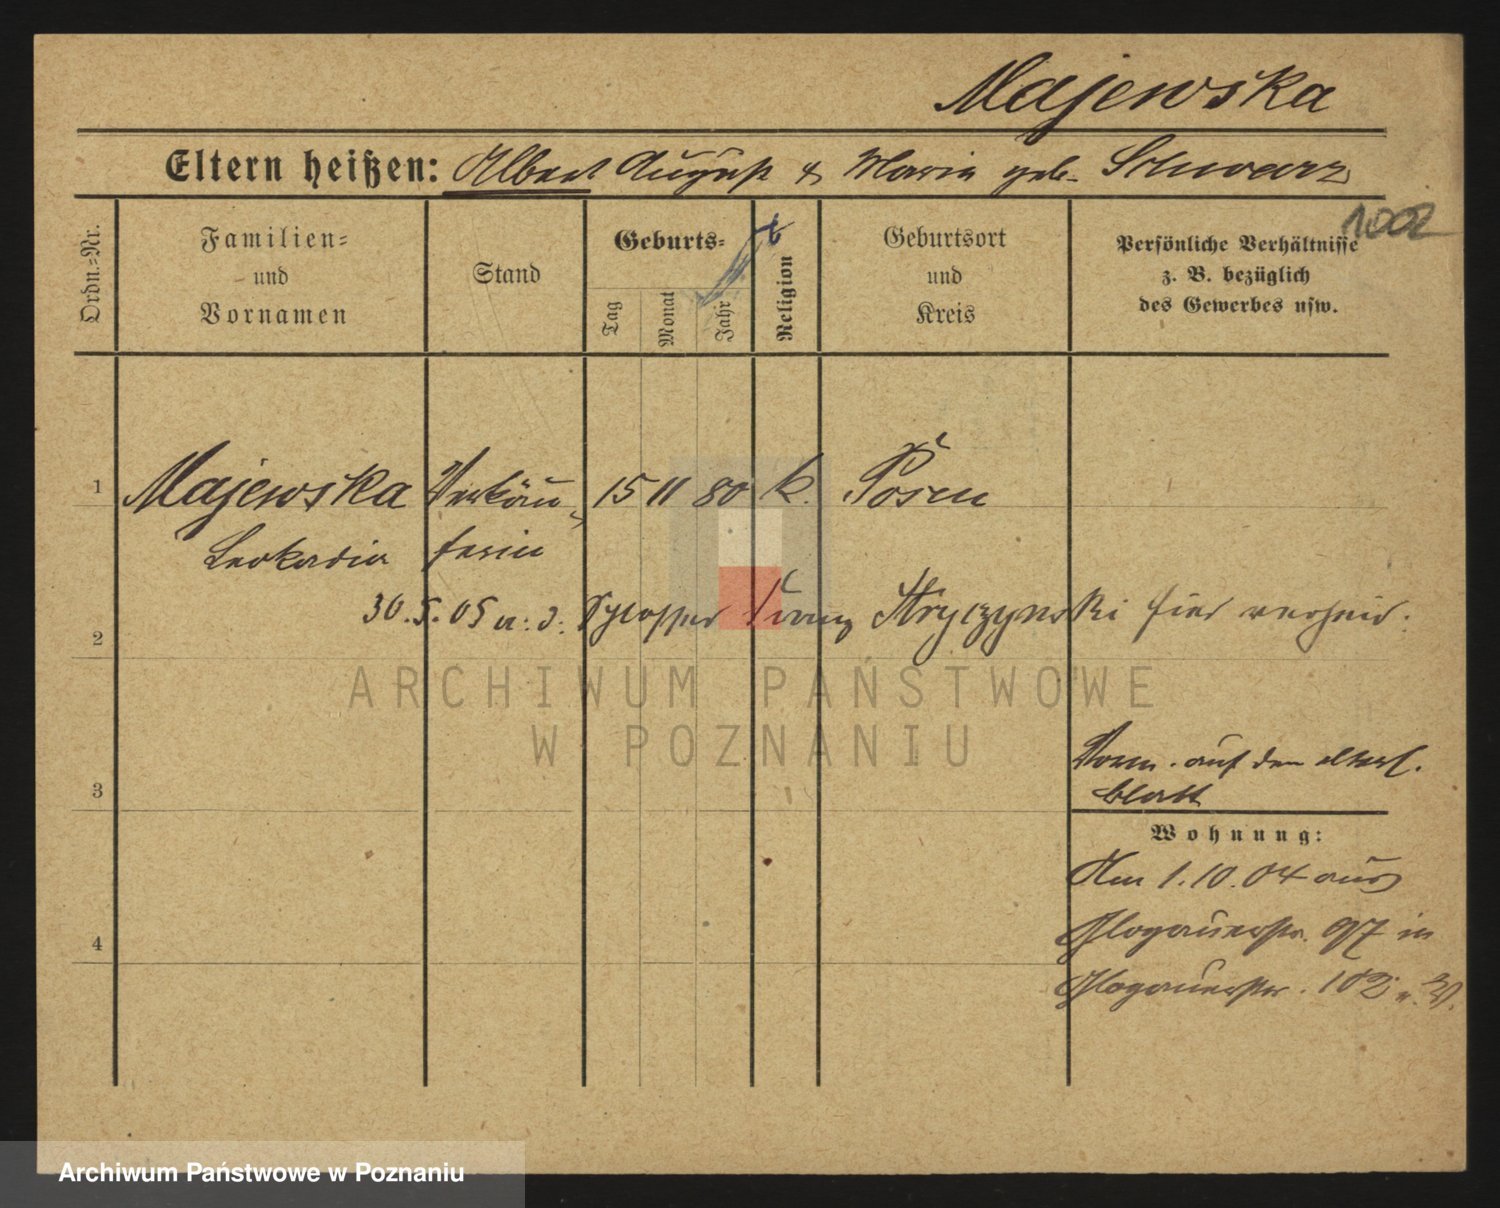 Majewska
Eltern heißen: Albert August & Maria geb. Schwarz
1002
Ordn.=Nr.
Familien=
und
Vornamen
Stand
Geburts=
Tag
Monat
Jahr
Religion
Geburtsort
und
Kreis
Persönliche Verhältnisse
z. B. bezüglich
des Gewerbes usw.
1 Majewska Verkäu- 15 11 80 k. Posen
Leokadia ferin
30.5.05 a: d: Schlosser Franz Stryczynski hier verheir.
2
ARCHIWUM PAŃSTWOWE
W POZNANIU
Vorm. auf dem elterl.
blatt
3
Wohnung:
Am 1.10.04 aus
Glogauerstr. 97 in
4
Glogauerstr. 102
Archiwum Państwowe w Poznaniu